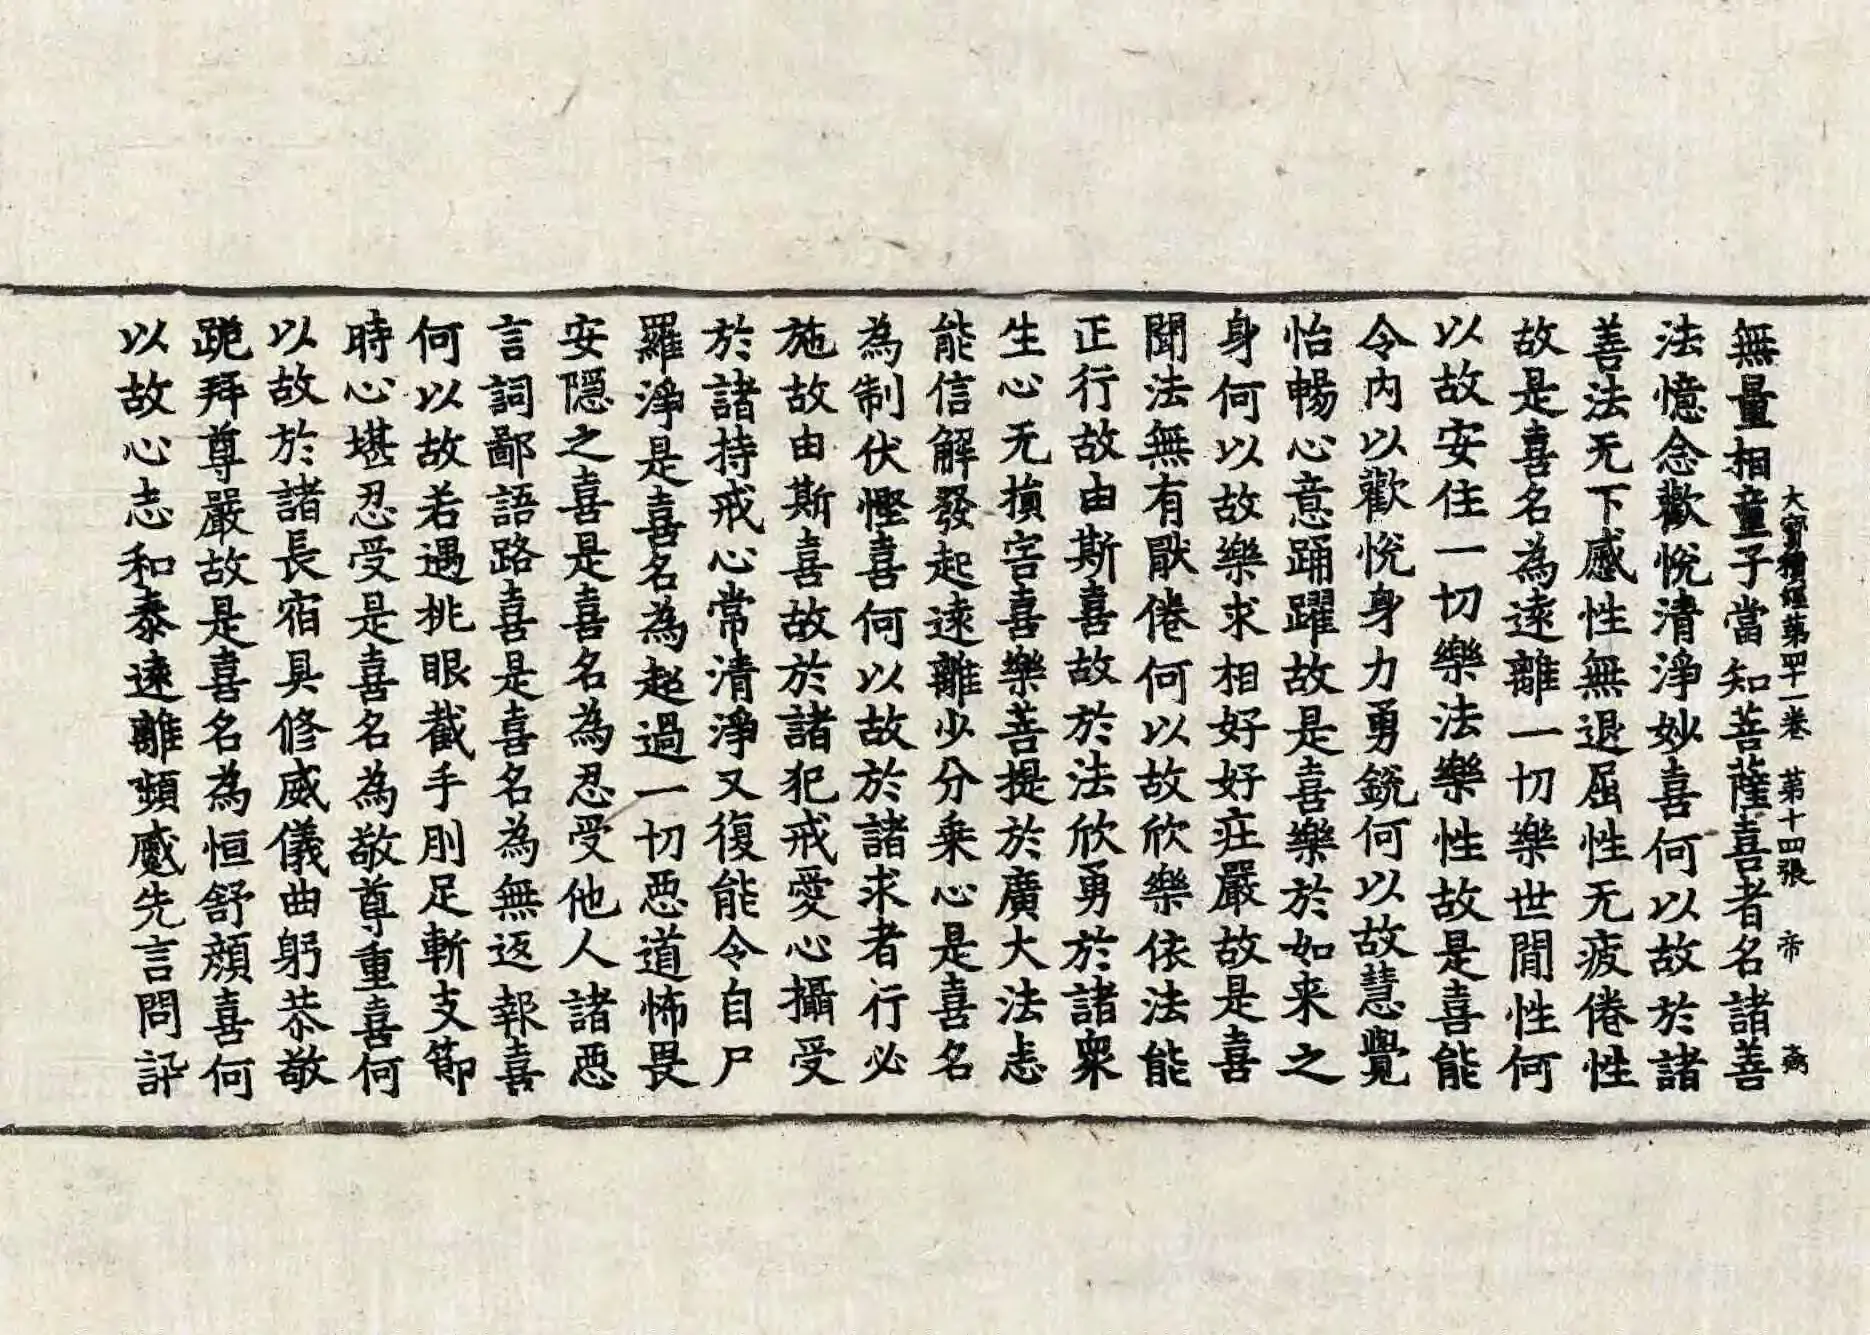 大寶積經第四十一卷 第十四張 帝
無量相童子當知菩薩喜者名諸善
法憶念歡悅清淨妙喜何以故於諸
善法无下慼性無退屈性无疲倦性
故是喜名為遠離一切樂世間性何
以故安住一切樂法樂性故是喜能
令內以歡悅身力勇銳何以故慧覺
怡暢心意踊躍故是喜樂於如来之
身何以故樂求相好好莊嚴故是喜
聞法無有猒倦何以故欣樂依法能
正行故由斯喜故於法欣勇於諸衆
生心无損害喜樂菩提於廣大法志
能信解發起遠離少分乗心是喜名
為制伏慳喜何以故於諸求者行必
施故由斯喜故於諸犯戒愛心攝受
於諸持戒心常清淨又復能令自尸
羅淨是喜名為超過一切惡道怖畏
安隱之喜是喜名為忍受他人諸惡
言詞鄙語路喜是喜名為無返報喜
何以故若遇挑眼截手刖足斬支節
時心堪忍受是喜名為敬尊重喜何
以故於諸長宿具修威儀曲躬恭敬
跪拜尊嚴故是喜名為恒舒顔喜何
以故心志和泰遠離顰慼先言問訊